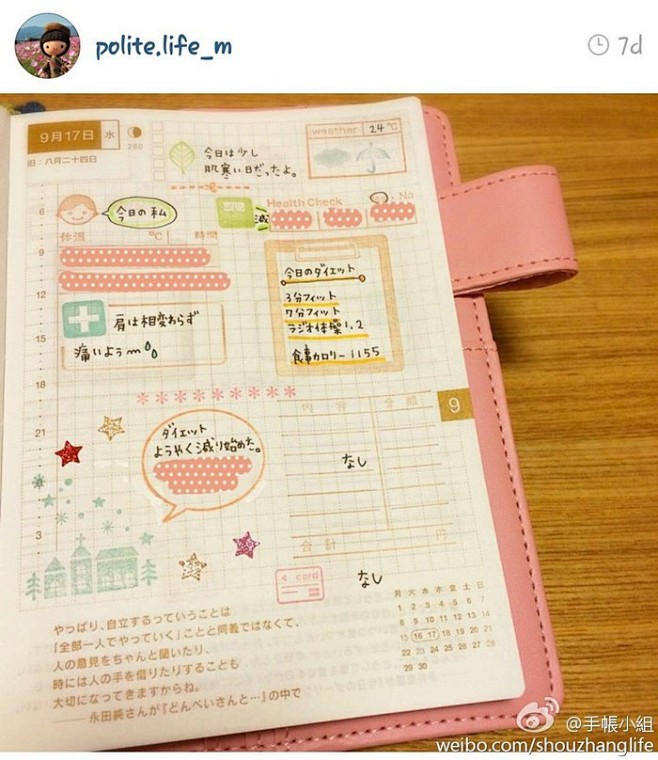 polite.life_m
7d
9月17日 水
260
旧：八月二十四日
今日は少し
肌寒い日だったよ。
weather 24℃
今日の私
Health Check
減
No
体温 ℃ 時間
6
9
12
15
18
21
3
今日のダイエット
3分フィット
7分フィット
ラジオ体操1.2
食事カロリー1155
肩は相変わらず
痛いようm
ダイエット
ようやく減り始めた。
内容 金額
9
なし
合計 円
card
なし
月 火 水 木 金 土 日
1 2 3 4 5 6 7
8 9 10 11 12 13 14
15 16 17 18 19 20 21
22 23 24 25 26 27 28
29 30
やっぱり、自立するっていうことは
「全部一人でやっていく」ことと同義ではなくて、
人の意見をちゃんと聞いたり、
時には人の手を借りたりすることも
大切になってきますからね。
──永田純さんが『どんべいさんと…』の中で
@手帳小組
weibo.com/shouzhanglife